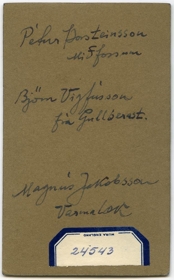 Pétur Þorsteinsson
Miðfossum
Björn Vigfússon
frá Gullberast.
Magnús Jakobsson
Varmalæk
24543